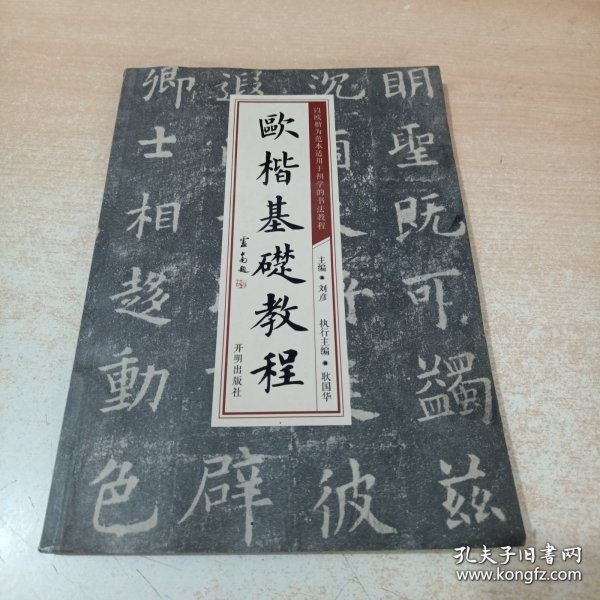 歐楷基礎教程
以欧楷为范本适用于初学的书法教程
主编 刘彦
执行主编 耿国华
开明出版社
明聖既可蠲兹
沉
彼
遐
辟
卿士相趍動色
孔夫子旧书网
www.kongfz.com